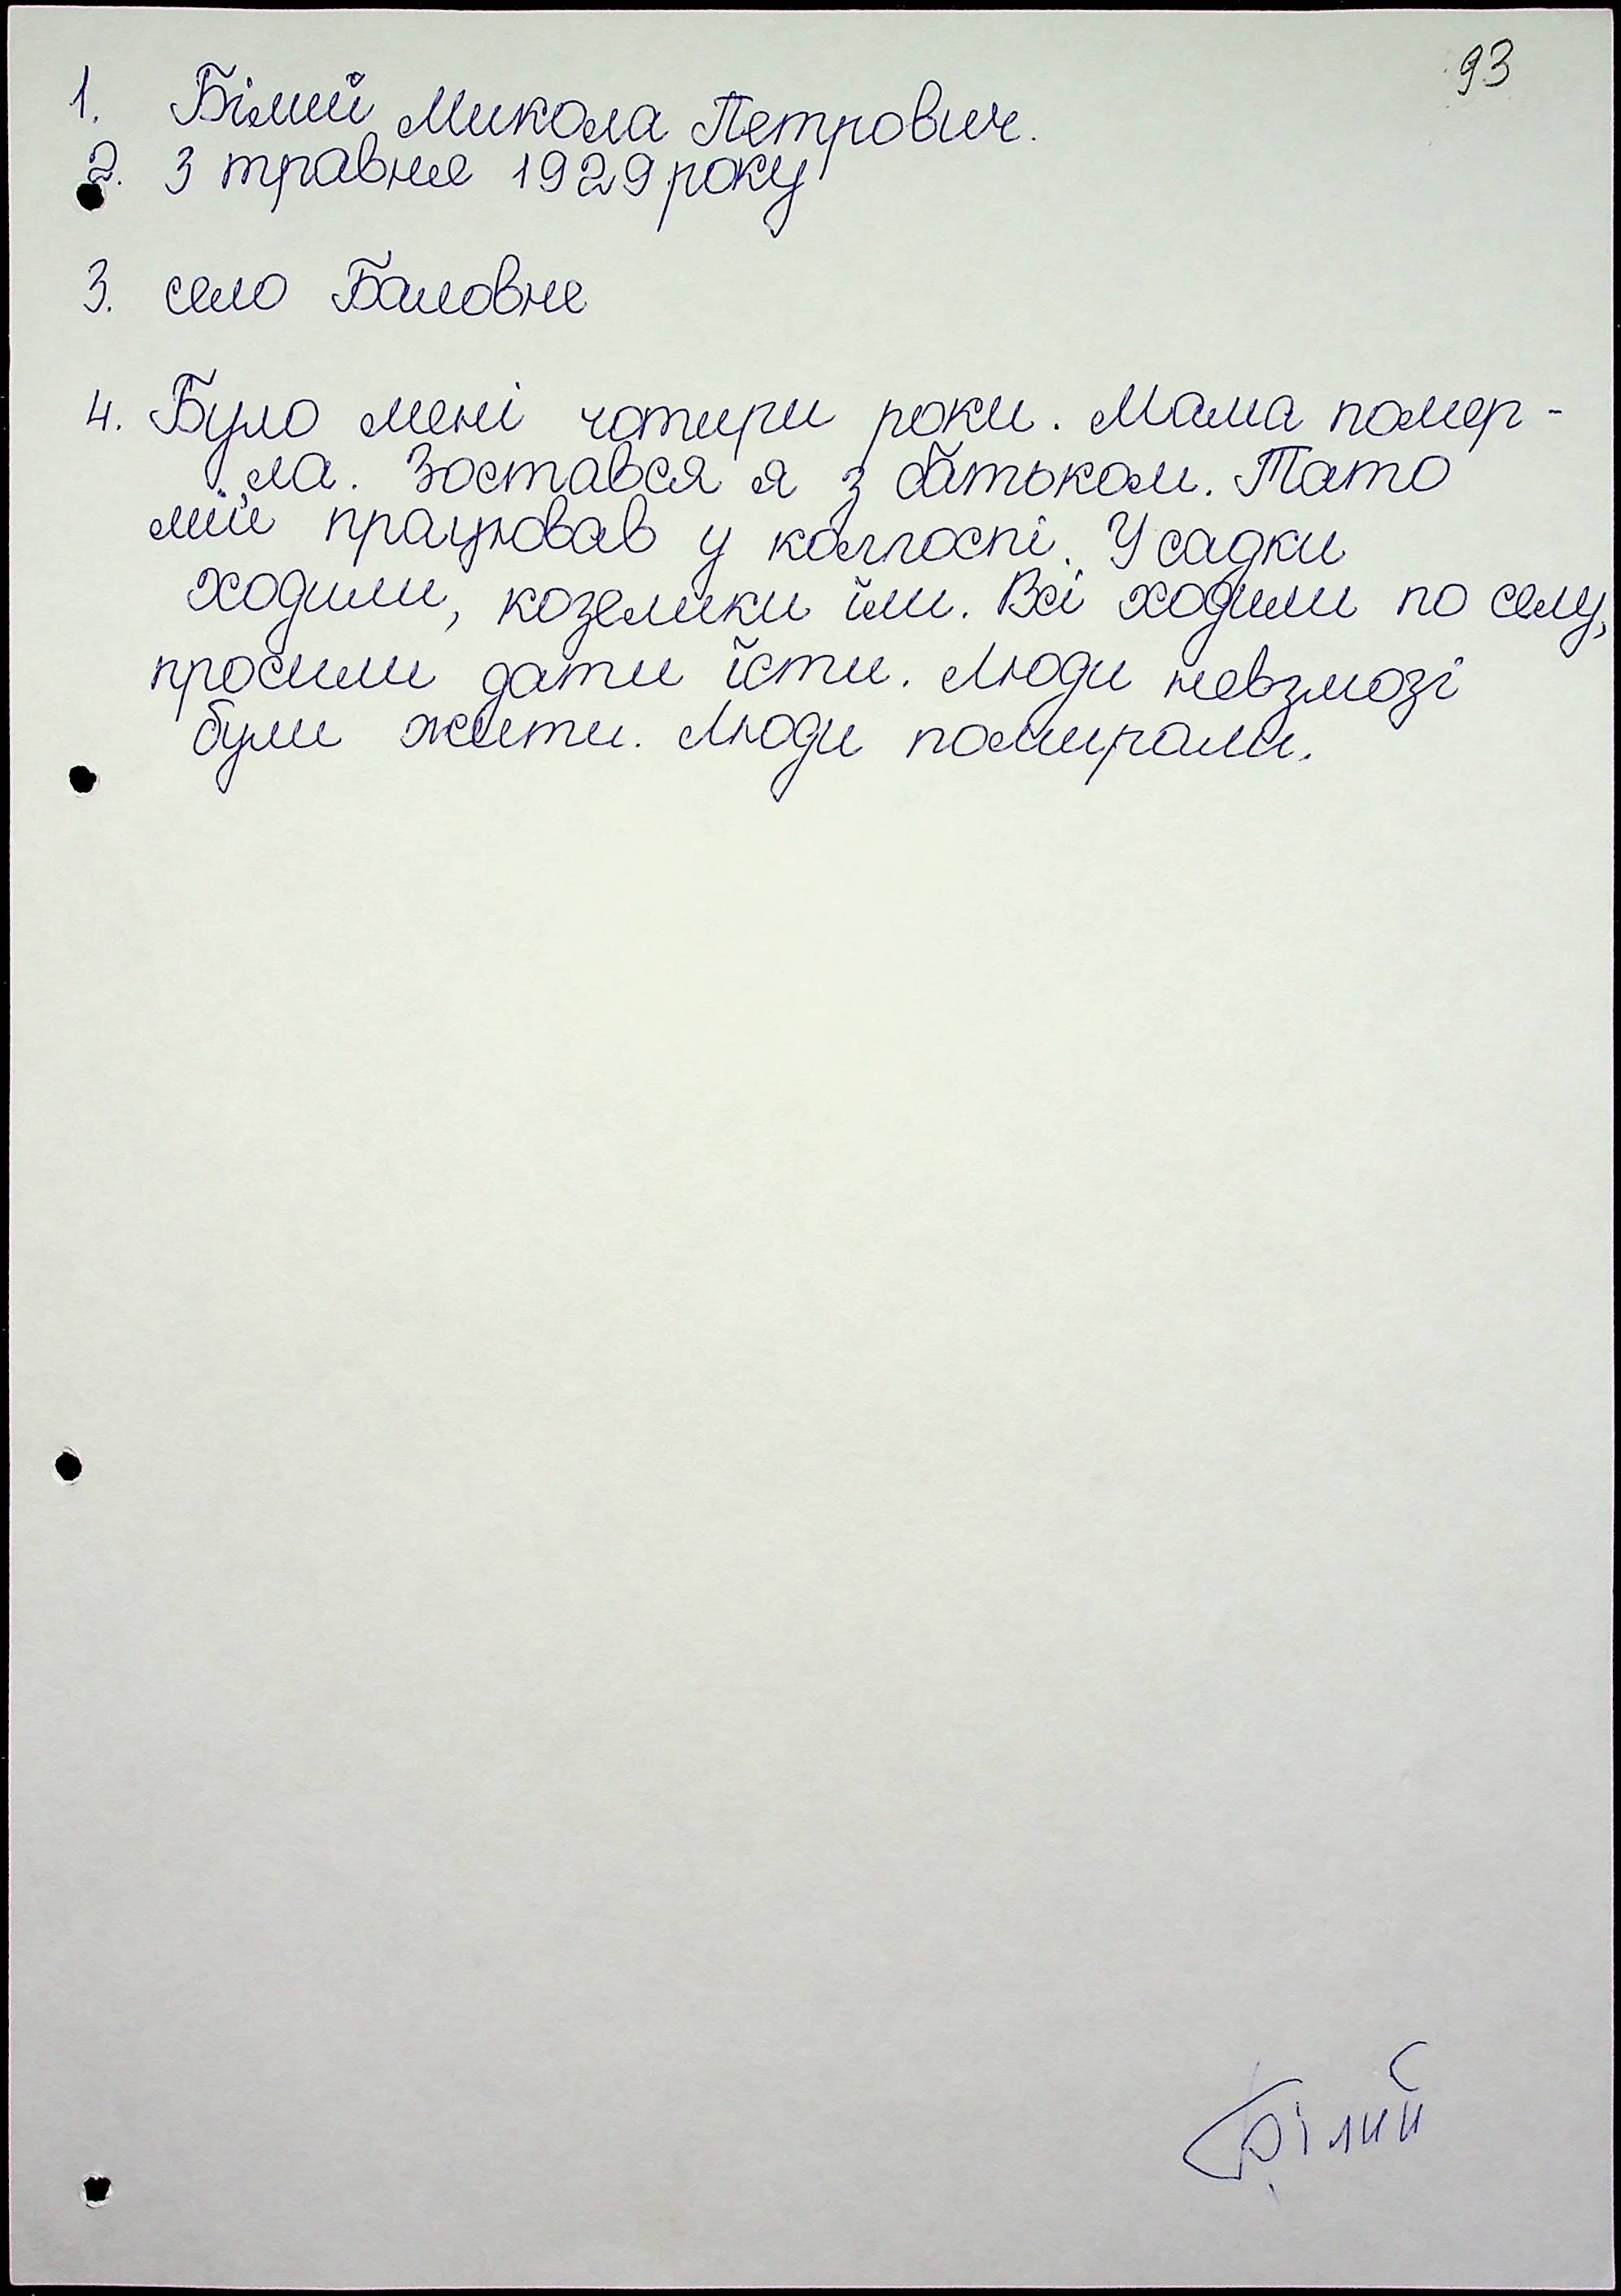 93
1. Білий Микола Петрович.
2. 3 травня 1929 року
3. село Баловне
4. Було мені чотири роки. Мама помер-
ла. Зостався я з батьком. Тато
мій працював у колгоспі. У садки
ходили, козелики їли. Всі ходили по селу,
просили дати їсти. Люди невзмозі
були жити. Люди помирали.
Білий